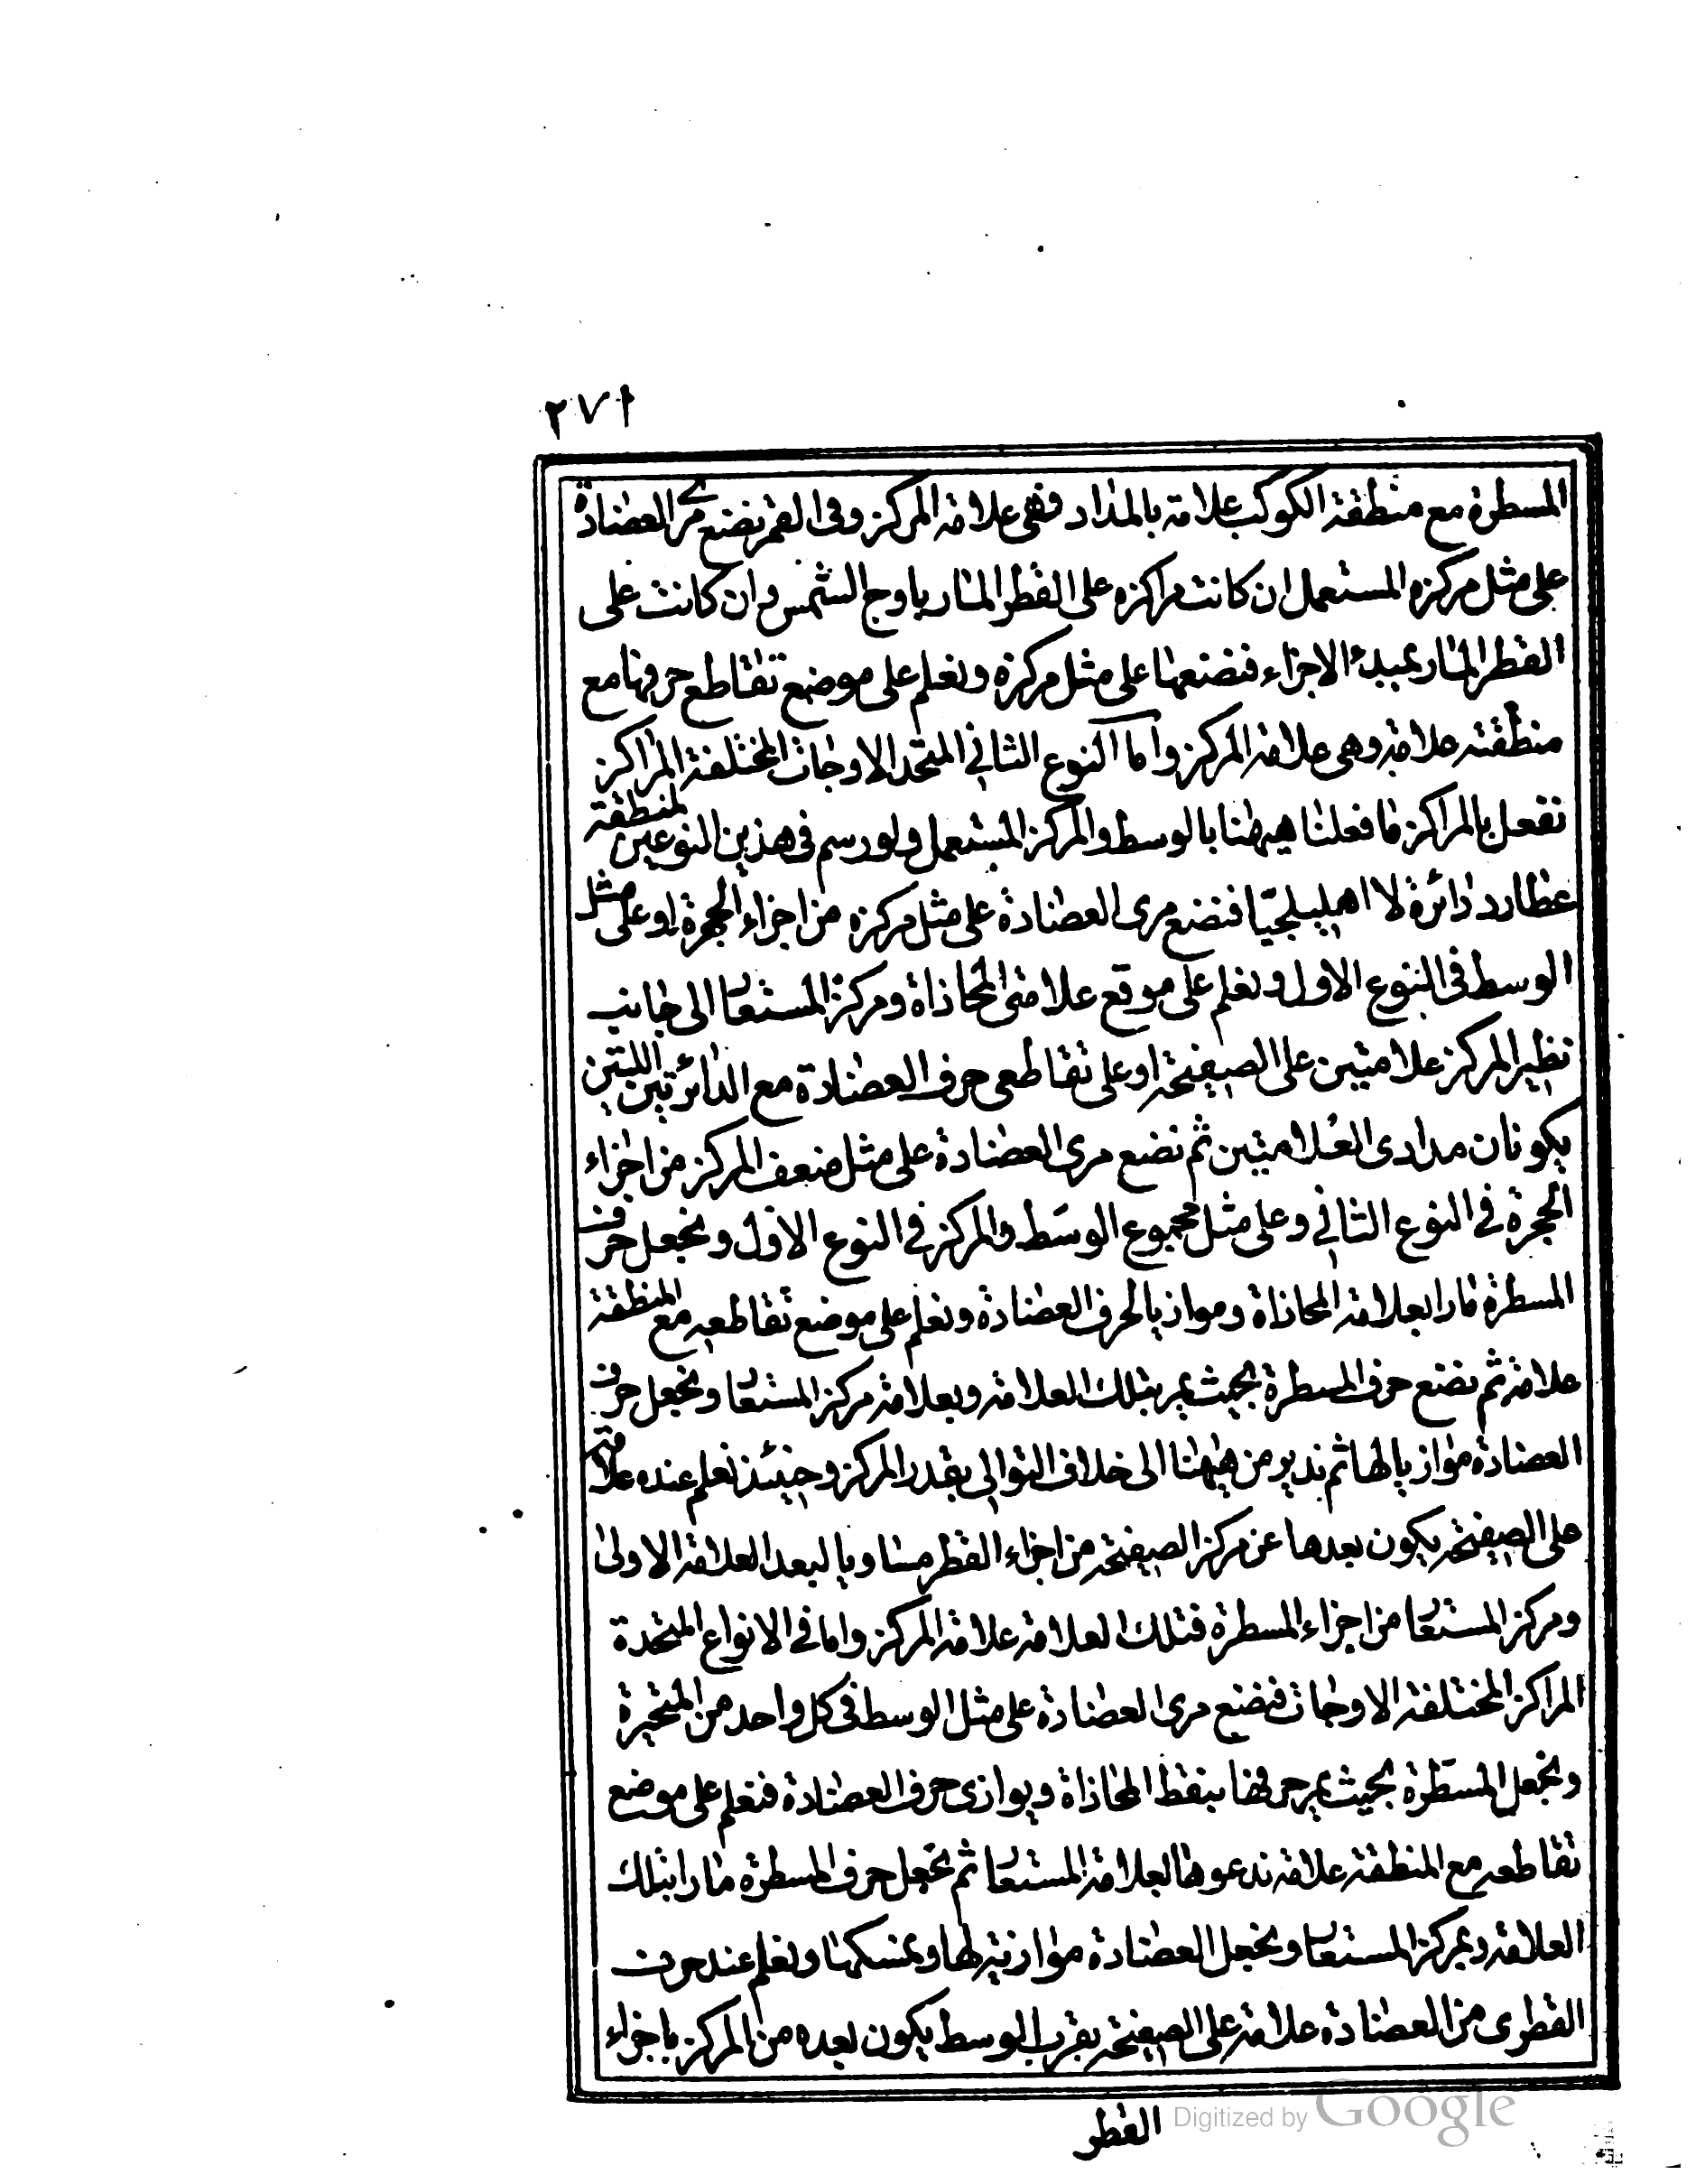 ٢٧١
المسطرة مع منطقة الكوكب علامة بالمداد فهى علامة المركز وفى القمر نضع مرى العضادة
على مثل مركزه المستعمل ان كانت مراكزه على القطر المار باوج الشمس وان كانت على
القطر المار بمبدء الاجزاء فنضعها على مثل مركزه ونعلم على موضع تقاطع حرفها مع
منطقته علامة وهى علامة المركز واما النوع الثانى المتحد الاوجات المختلفة المراكز
نفعل بالمراكز ما فعلنا هيهنا بالوسط والمركز المستعمل ولو رسم فى هذين النوعين لمنطقة
عطارد دائرة لا اهليلجيا فنضع مرى العضادة على مثل مركزه من اجزاء الحجرة او على مثل
الوسط فى النوع الاول ونعلم على موقع علامتى المحاذاة ومركز المستعا الى جانب
نظير المركز علامتين على الصفيحة او على تقاطعى حرف العضادة مع الدائرتين اللتين
يكونان مدارى العلامتين ثم نضع مرى العضادة على مثل ضعف المركز من اجزاء
الحجرة فى النوع الثانى وعلى مثل مجموع الوسط والمركز فى النوع الاول ونجعل حرف
المسطرة مارا بعلامة المحاذاة وموازيا لحرف العضادة ونعلم على موضع تقاطعه مع المنطقة
علامة ثم نضع حرف المسطرة بحيث يمر بتلك العلامة وبعلامة مركز المستعا ونجعل حرف
العضادة موازيا لها ثم ندير من هيهنا الى خلاف التوالى بقدر المركز وحينئذ نعلم عنده علامة
على الصفيحة يكون بعدها عن مركز الصفيحة من اجزاء القطر مساويا لبعد العلامة الاولى
ومركز المستعا من اجزاء المسطرة فتلك العلامة علامة المركز واما فى الانواع المتحدة
المراكز المختلفة الاوجات فنضع مرى العضادة على مثل الوسط فى كل واحد من المتحيرة
ونجعل المسطرة بحيث يمر حرفها بنقطة المحاذاة ويوازى حرف العضادة فنعلم على موضع
تقاطعه مع المنطقة علامة ندعوها العلامة المستعا ثم نجعل حرف المسطرة مارا بتلك
العلامة وبمركز المستعا ونجعل العضادة موازية لها ونمسكها ونعلم عند حرف
القطرى من العضادة علامة على الصفيحة بقرب الوسط يكون بعده من المركز باجزاء
القطر
Digitized by Google